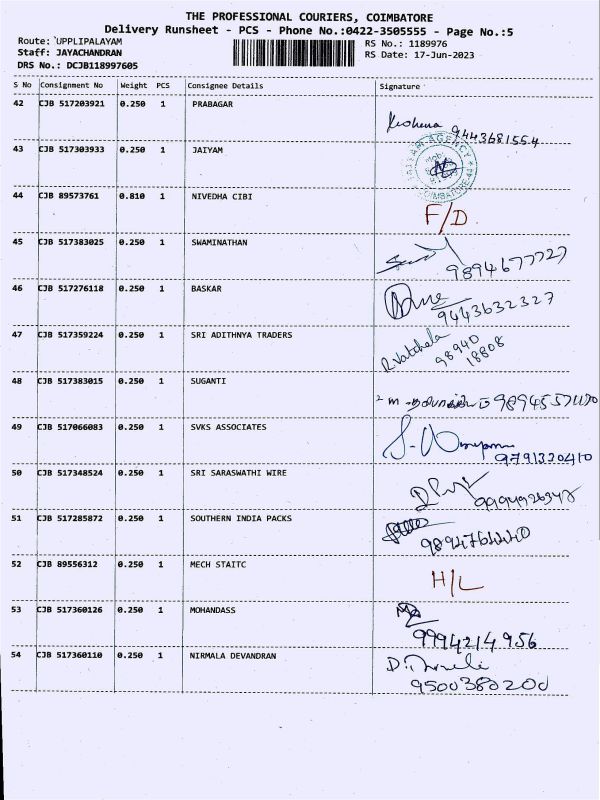 THE PROFESSIONAL COURIERS, COIMBATORE
Delivery Runsheet - PCS - Phone No.:0422-3505555 - Page No.:5
Route: UPPLIPALAYAM
RS No.: 1189976
Staff: JAYACHANDRAN
RS Date: 17-Jun-2023
DRS No.: DCJB118997605
S No Consignment No Weight PCS Consignee Details Signature
42 CJB 517203921 0.250 1 PRABAGAR
9443681554
43 CJB 517303933 0.250 1 JAIYAM
AGENCY
COIMBATORE-44
44 CJB 89573761 0.810 1 NIVEDHA CIBI
F/D
45 CJB 517383025 0.250 1 SWAMINATHAN
9894677727
46 CJB 517276118 0.250 1 BASKAR
9443632327
47 CJB 517359224 0.250 1 SRI ADITHNYA TRADERS
R. Vatchala
98940
18808
48 CJB 517383015 0.250 1 SUGANTI
49 CJB 517066083 0.250 1 SVKS ASSOCIATES
9791320410
50 CJB 517348524 0.250 1 SRI SARASWATHI WIRE
51 CJB 517285872 0.250 1 SOUTHERN INDIA PACKS
9894764440
52 CJB 89556312 0.250 1 MECH STAITC
H/L
53 CJB 517360126 0.250 1 MOHANDASS
9994214956
54 CJB 517360110 0.250 1 NIRMALA DEVANDRAN
9500380200